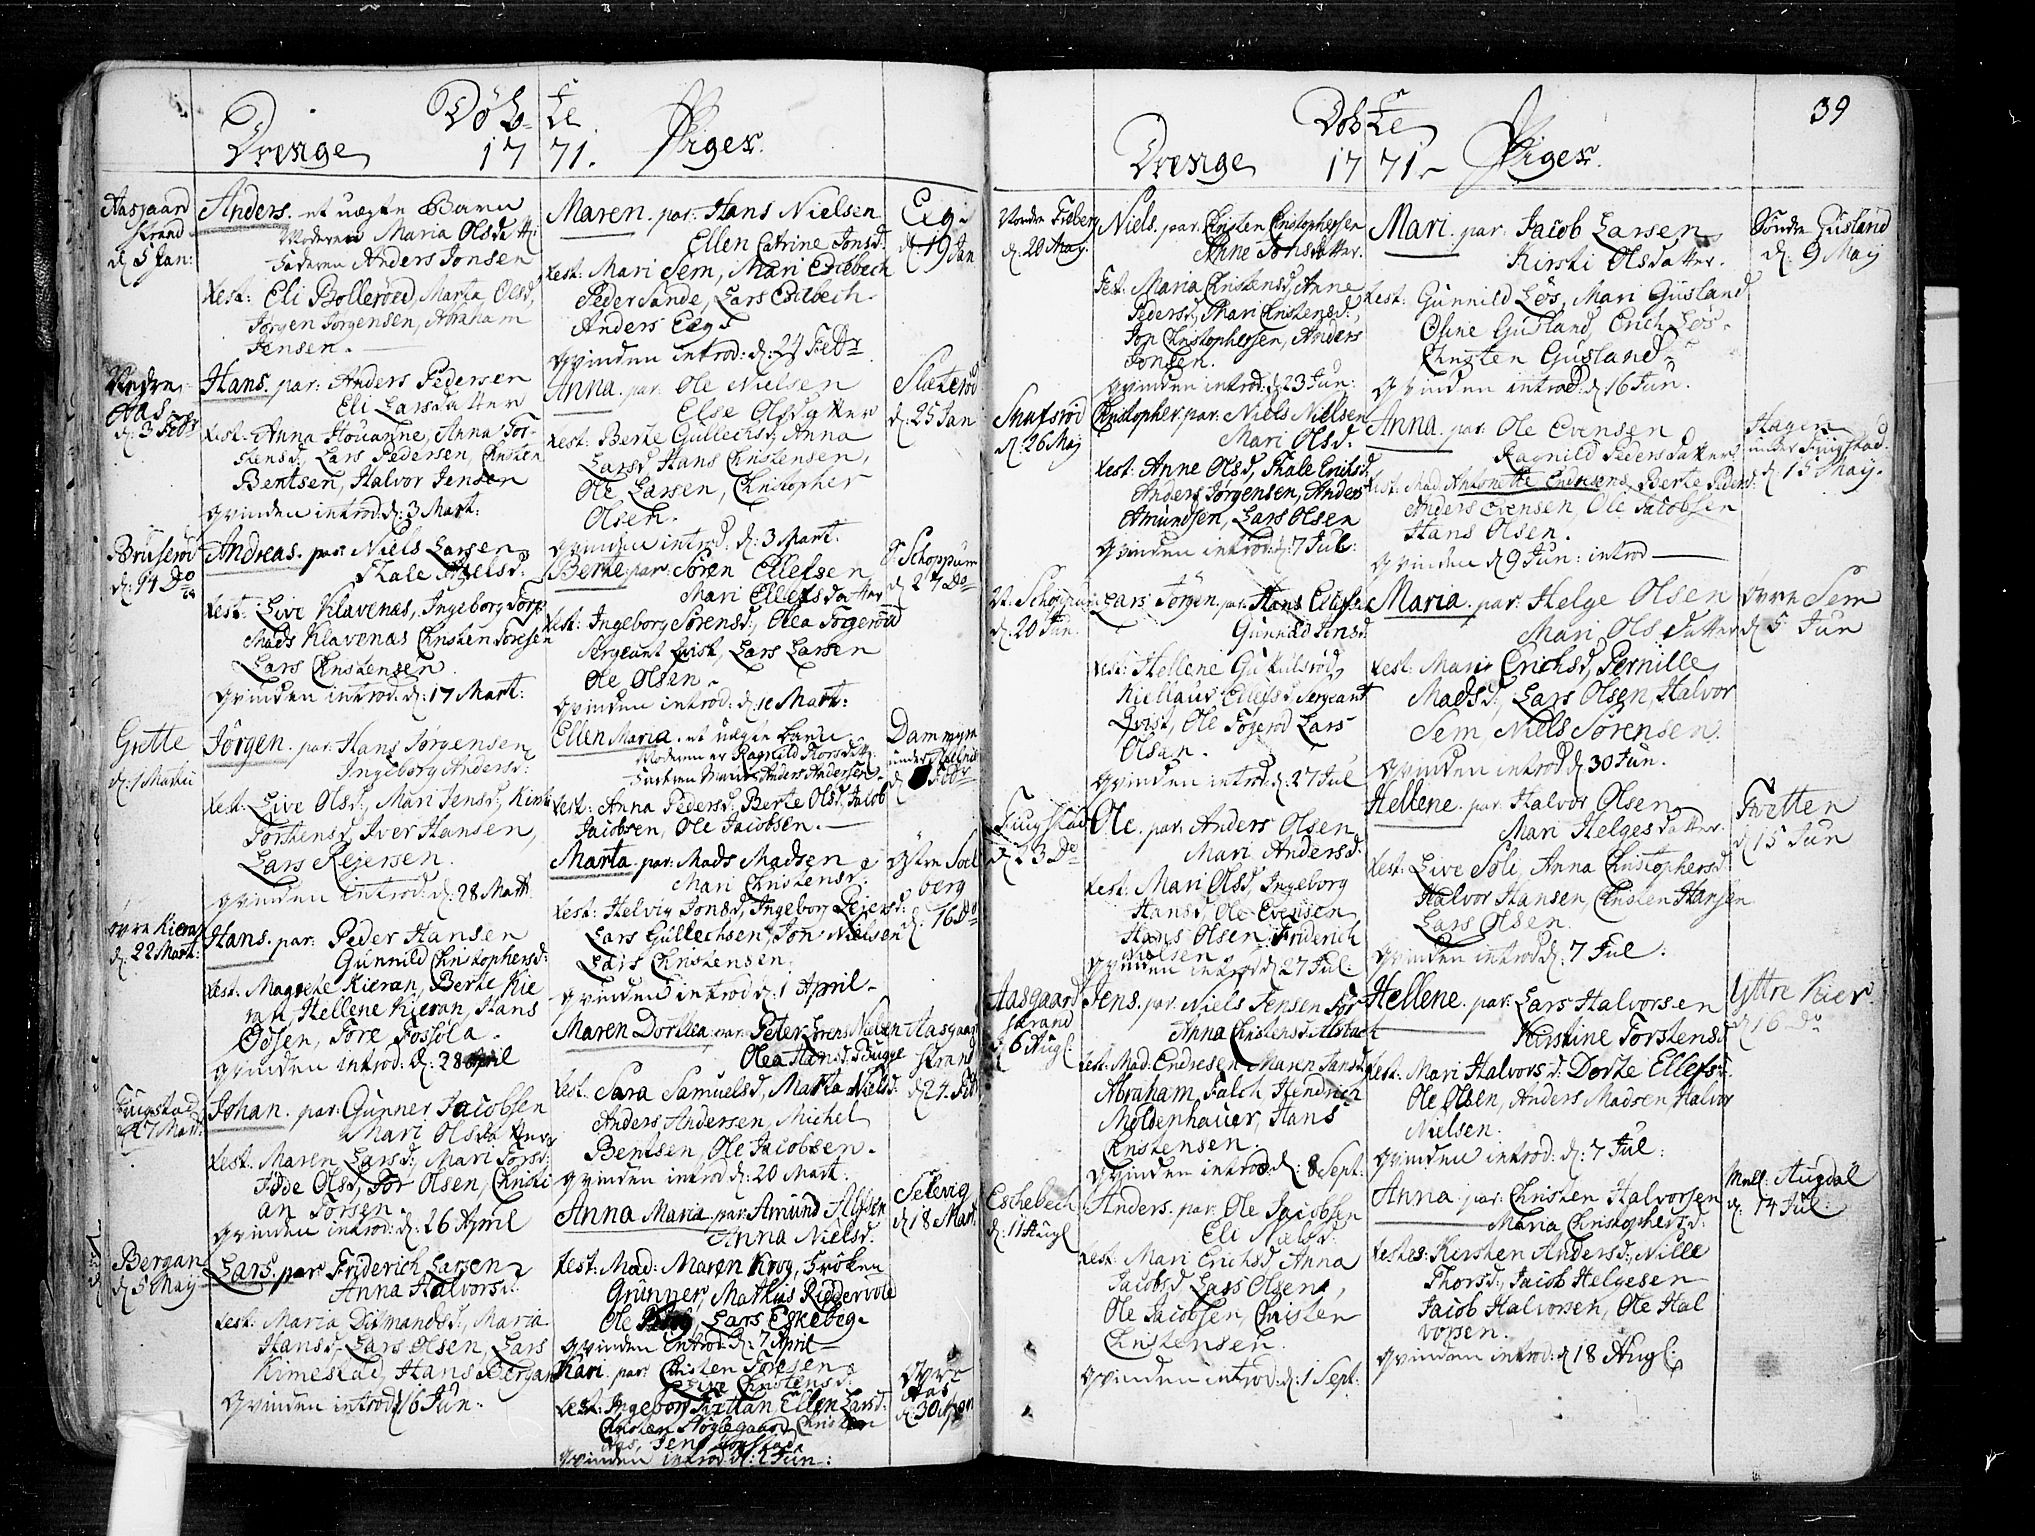 Døbte
Drenge 1771. Piger.
Aasgaard
strand
d. 5 Jan:
Anders. et uægte Barn
Moderen Maria Olsdatt:
Faderen Anders Jonsen
test: Eli Bollerød, Marta Olsd,
Jørgen Jørgensen, Abraham
Jensen.
Nedre
Aas
d. 3 Febr
Hans. par: Anders Pedersen
Eli Larsdatter
test: Anna Anna Tor-
stensd, Lars Pedersen, Christen
Bentsen, Halvor Jensen
qvinden introd: d: 3 Mart:
Bruserød
d: 14 Do
Andreas. par: Niels Larsen
Thale
test: Live Klavenæs, Ingeborg Torp
Mads Klavenæs Christen Toresen
Lars Christensen.
qvinden introd: d: 17 Mart:
Gutte
d. 1 Martii
Jørgen. par: Hans Jørgensen
Ingeborg Andersd:
test: Live Olsd, Mari Jensd,
Torstensd, Iver Hansen,
Lars Rejersen.
qvinden introd: d. 28 Mart
øvre Kieran
d. 22 Mart:
Hans. par: Peder Hansen
Gunnild Christophersd:
test. Magrethe Kieran, Berte Kie
ran Hellene Kieran, Hans
Olsen, Tore Fossøla.
qvinden introd: d: 28 April
Fuugstad
d. 27 Mart:
Johan. par: Gunner Jacobsen
Mari Olsdatter
test. Maren Larsd, Mari Torsd:
Olsd, Tor Olsen, Christi
an Torsen.
qvinden introd: d: 26 April
Bergan
d. 5 Maij
Lars. par: Friderich Larsen
Anna Halvorsd:
test: Maria Maria
Hansd, Lars Olsen, Lars
Kimestad, Hans Bergan
qvinden introd 16 Jun.
Maren. par: Hans Nielsen
Ellen Catrine Jonsd:
test: Mari Sem, Mari Esebech
Peder Sande, Lars Esebech
Anders Eeg
qvinden introd: d: 24 Febr
Eeg
d. 19 Jan
Anna. par: Ole Nielsen
Else Olsdatter
test: Berte Gullechsd, Anna
Larsd Hans Christensen,
Ole Larsen, Christopher
Olsen.
qvinden introd. d: 3 Mart.
Slæterød
d. 25 Jan
Berte. par: Søren Ellefsen
Mari Ellefsdatter
test: Ingeborg Sørensd, Olea Togerød
Sergeant Qvist, Lars Larsen
Ole Olsen.
qvinden introd: d: 10 Mart:
Schoppum
d 27 Do
Ellen Maria. et uægte barn
Moderen er Ragnild Torsdatt:
Anders Andersen.
test: Anna Pedersd: Berte Olsd, Jacob
Jacobsen, Ole Jacobsen.
Dammyn
under
Febr
Marta par: Mads Madsen
Mari Christensd:
test: Helvig Jonsd, Ingeborg Rejersd:
Lars Gullechsen, Jon Nielsen
Lars Christensen.
qvinden introd d. 1 April
østre Soel
berg
d. 16 Do
Maren Dorthea par: Peter Nielsen
Olea Hansd:
test. Sara Samuelsd, Marta Nielsd.
Anders Andersen, Michel
Bentsen, Ole Jacobsen.
qvinden introd d. 20 Mart.
Aasgaard
strand
d 24 Feb
Anna Maria. par: Amund
Anna Nielsd:
test: Mad: Maren Krog, Frøken
Grunner, Mathias Riddervold
Ole Lars Eskebeg
qvinden introd: d: 7 April
Selevig
d. 18 Mart
Kari par: Christen Toresen
Live Christensd:
test. Ingeborg Ellen Larsd:
Christen Christen
Aas, Jens
qvinden introd: d: 2 Jun:
øvre
Aas
d: 30 April
39
Døbte
Drenge 1771. Piger.
Nordre
d. 20 Maij
Niels. par: Christen Christophersen
Anne Jonsdatter.
Test: Maria Christensd, Anne
Pedersd, Mari Christensd,
Christophersen, Anders
Jonsen.
qvinden introd: d 23 Jun:
Snapsrød
d. 26 Maij
Christopher. par: Niels Nielsen
Mari Olsd:
test: Anne Olsd, Thale Erichsd,
Anders Jørgensen, Anders
Amundsen, Lars Olsen
qvinden introd: d. 7 Jul:
Schoppum
d. 20 Jun.
Lars Jørgen. par: Hans Ellefsen
Gunnild Jensd:
test: Hellene
Ellefsd Sergeant
Qvist, Ole Togerød Lars
Olsen.
qvinden introd: d: 27 Jul
Fuugstad
d 23 Do
Ole. par: Anders Olsen
Mari Andersd:
test: Mari Olsd, Ingeborg
Hansd, Ole Evensen
Hans Olsen, Friderich
Nielsen
qvinden introd d 27 Jul:
Aasgaard
strand
d 6 Augl:
Jens. par: Niels Jensen
Anna Christensd
test. Mad. Endresen Maren Jansd
Abraham Falch Hendrich
Moldenhauer, Hans
Christensen.
qvinden introd: d: 8 Sept:
Eschebech
d: 11 Augl
Anders. par: Ole Jacobsen
Eli
test: Mari Erichsd, Anna
Jacobsd, Lars Olsen,
Ole Jacobsen, Christen
Christensen.
qvinden introd: d: 1 Sept:
Mari. par: Jacob Larsen
Kirsti Olsdatter.
test: Gunnild Løs, Mari Gusland
Oline Gusland, Erich Løs.
Christen Gusland
qvinden introd: d 16 Jun.
Søndre Gusland
d. 9 Maij
Anna. par: Ole Evensen
Ragnild Pedersdatter
test. Mad: Antonette Endresens, Berte Pedersd:
Anders Evensen Ole Jacobsen
Hans Olsen.
qvinden d 9 Jun: introd
Hagen
under Fuugstad.
d. 15 Maij.
Maria. par: Helge Olsen
Mari Olsdatter
test: Mari Erichsd, Pernille
Madsd, Lars Olsen, Halvor
Sem, Niels Sørensen.
qvinden introd d. 30 Jun.
øvre Sem
d 5 Jun
Hellene. par: Halvor Olsen
Mari Helgesdatter.
test: Live Soli, Anna Christophersd:
Halvor Hansen, Christen Hansen
Lars Olsen.
qvinden introd d. 7 Jul:
Tvetten
d 15 Jun
Hellene. par: Lars Halvorsen
Kirstine Torstensd
test: Mari Halvorsd: Dorte Ellefsd:
Ole Olsen, Anders Madsen Halvor
Nielsen.
qvinden introd: d: 7 Jul:
Yttre Kier
d 16 Do
Anna. par: Christen Halvorsen
Maria Christophersd:
testes: Kirsten Andersd, Nille
Thorsd, Jacob Helgesen
Jacob Halvorsen, Ole Hal
vorsen.
qvinden introd: d 18 Augl:
Mell: Augdal
d. 14 Jul: